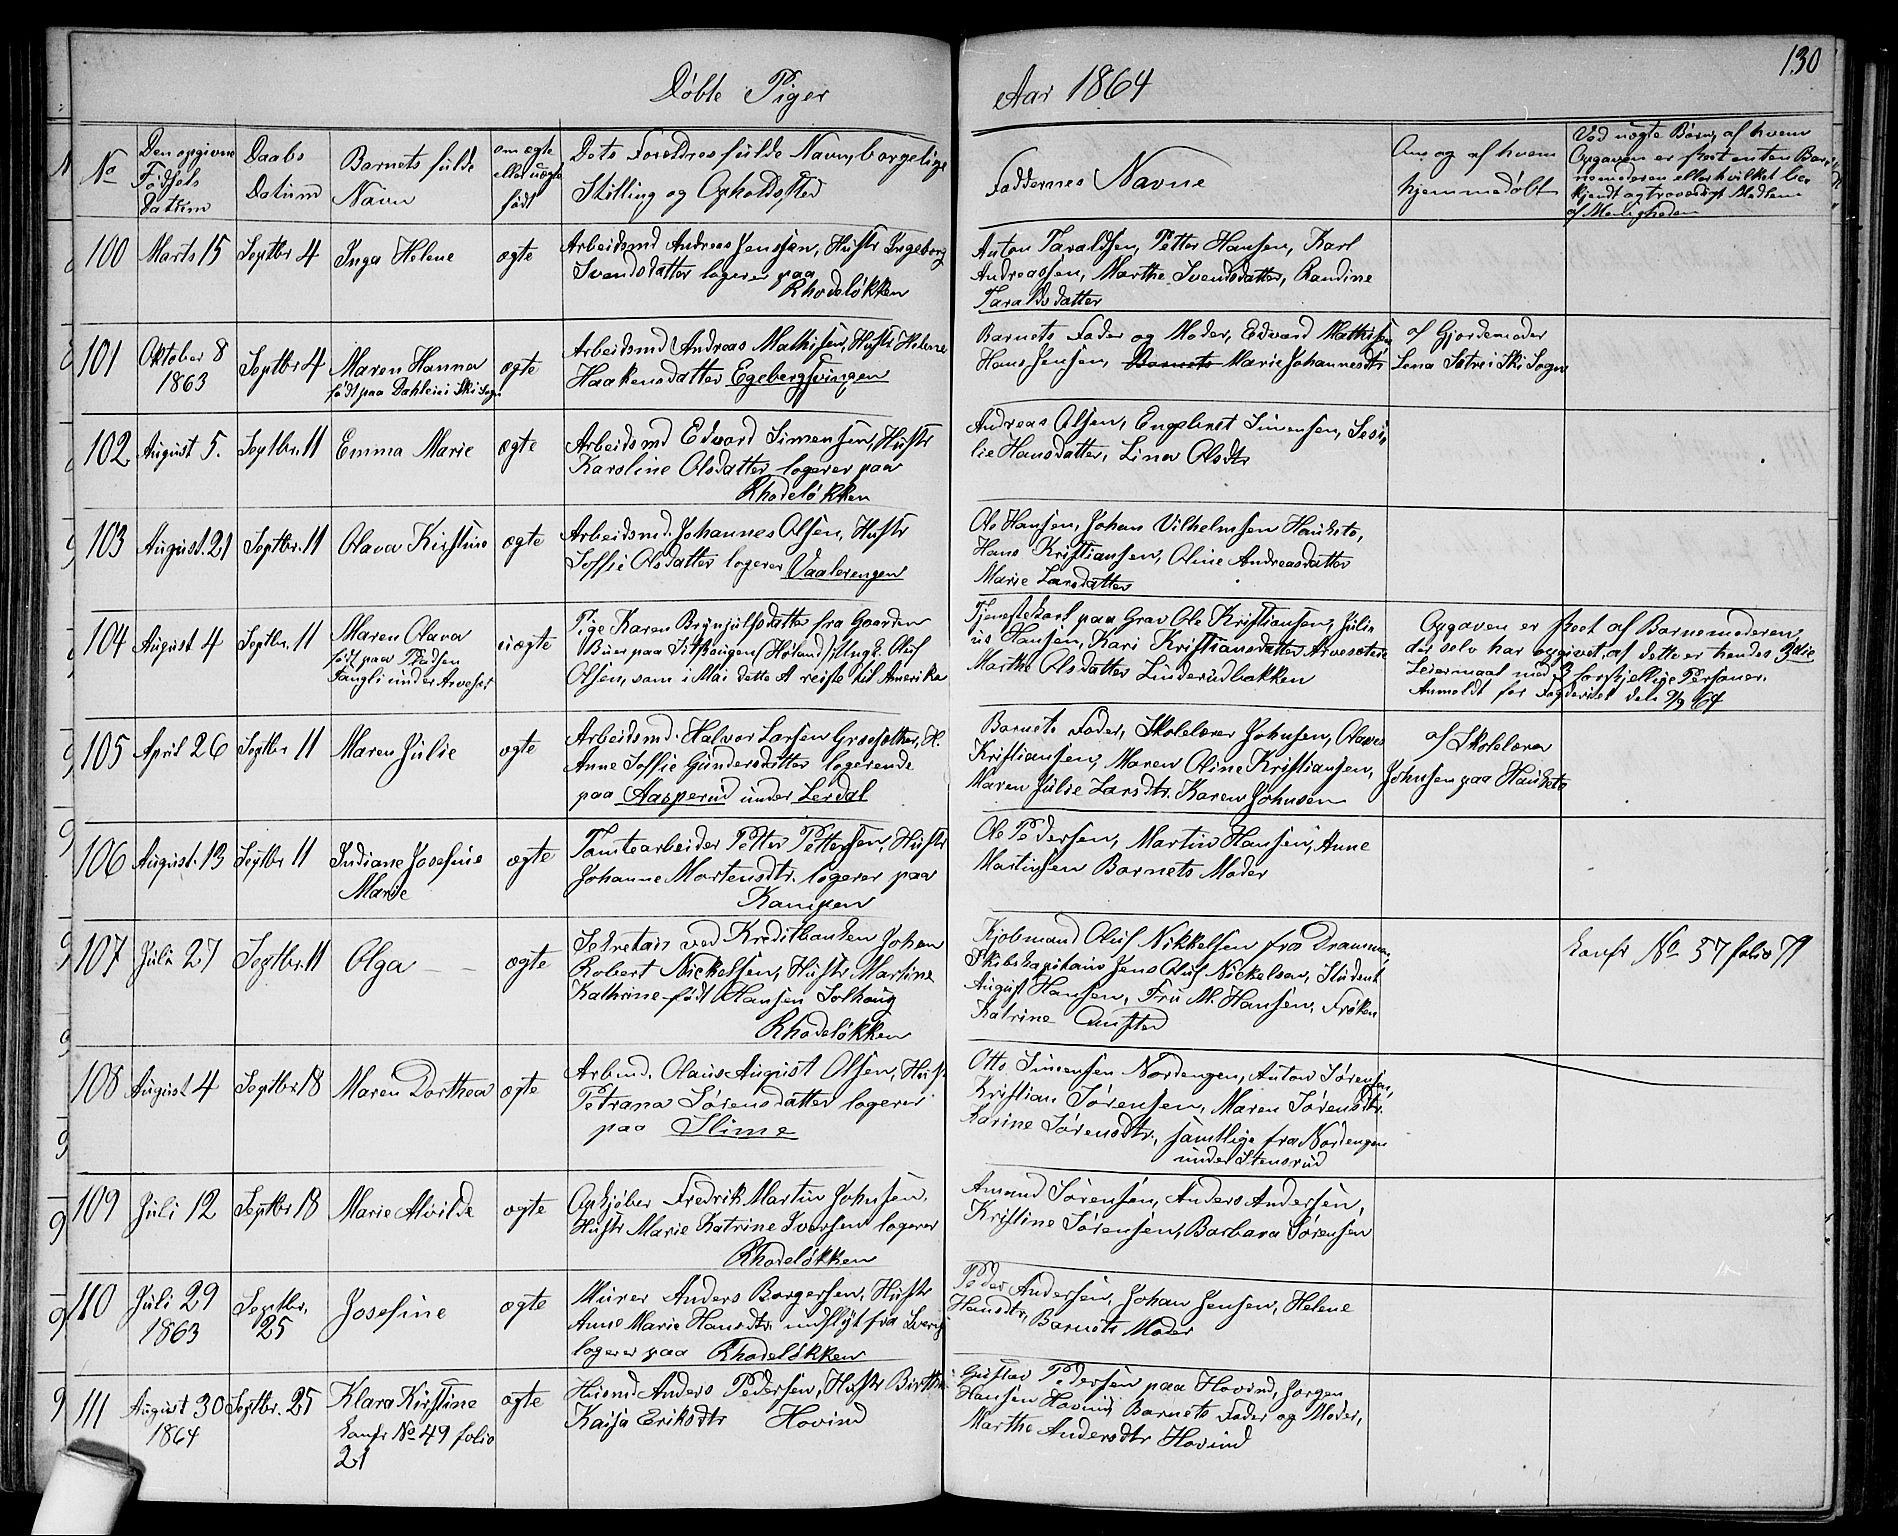 130
Døbte Piger
Aar 1864
No
Den opgivne
Fødsels
Datum
Daabs
Datum
Barnets fulde
Navn
om ægte
eller uægte
født
Dets Foreldres fulde Navn, borgelige
Stilling og Opholdssted
Faddernes Navne
Om og af hvem
hjemmedøbt
Ved uægte Børn, af hvem
Opgaven er skeet enten Bar-
nemoderen eller hvilket be-
kjendt og troværdigt Medlem
af Menigheden
100
Marts 15
Septbr 4
Inga Helene
ægte
Arbeidsmd Andreas Jenssen, Hustr Ingeborg
Svendsdatter logerer paa
Rhodeløkken
Anton Taraldsen, Petter Hansen, Karl
Andreassen, Marthe Svendsdatter, Randine
Taraldsdatter
101
Oktober 8
1863
Septbr 4
Maren Hanna
født paa Dahlen i Ski Sogn
ægte
Arbeidsmd Andreas Mathisen, Hustr Helene
Haakensdatter Egebergsvingen
Barnets Fader og Moder, Edvard Mathisen
Hans Jensen, Barnets Marie Johannesdtr
af Gjordemoder
Lena Sætre i Ski Sogn
102
August 5.
Septbr. 11
Emma Marie
ægte
Arbeidsmd Edvard Simensen, Hustr
Karoline Olsdatter logerer paa
Rhodeløkken
Andreas Olsen, Engebret Simensen, Sesi-
lie Hansdatter, Lina Olsdtr
103
August. 21
Septbr. 11
Olava Kirstine
ægte
Arbeidsmd. Johannes Olsen, Hustr
Soffie Olsdatter logerer Vaalerengen
Ole Hansen, Johan Vilhelmsen Hauketo,
Hans Kristiansen, Oline Andreasdatter
Marie Larsdatter
104
August 4
Septbr. 11
Maren Olava
født paa Pladsen
Fangli under Arveset
uægte
Pige Karen Brynjulfsdatter fra Gaarden
Buer paa Høland, Ungk. Oluf
Olsen, som i Mai dette A reiste til Amerika
Tjenestekarl paa Grav Ole Kristiansen, Juli-
us Hansen, Kari Kristiansdatter Arvesætere
Marthe Olsdatter Linderudbakken
Opgaven er skeet af Barnemoderen,
der selv har opgivet, af dette er hendes 3die
Leiermaal med 3 forskjellige Personer.
Anmeldt for Fogderiet den 9/9 64
105
April 26
Septbr 11
Maren Julie
ægte
Arbeidsmd. Halvor Larsen Græsæther, H.
Anne Soffie Gundersdatter logerende
paa Aasperud under Lerdal
Barnets Fader, Skolelærer Johnsen, Olaves
Kristiansen, Maren Oline Kristiansen,
Maren Julie Larsdtr. Karen Johnsen
af Skolelærer
Johnsen paa Hauketo
106
August. 13
Septbr 11
Indiane Josefine
Marie
ægte
Tomtearbeider Petter Pettersen, Hustr
Johanne Mortensdtr. logerer paa
Kampen
Ole Pedersen, Martin Hansen, Anne
Martinsen Barnets Moder
107
Juli 27
Septbr. 11
Olga
ægte
Sekretair ved Kreditbanken Johan
Robert Nickelsen, Hustr Martine
Kathrine født Hansen Solhaug
Rhodeløkken
Kjøbmand Oluf Nikkelsen fra Drammen,
Skibskapitain Jens Oluf Nickelsen, Student
August Hansen, Fru M. Hansen, Frøken
Katrine
Confr No 57 folio 79
108
August 4
Septbr 18
Maren Dorthea
ægte
Arbmd. Olaus August Olsen, Hustr
Petrana Sørensdatter logerer
paa Slime
Otto Simensen Nordengen, Anton Sørensen,
Kristian Sørensen, Maren Sørensdtr.
Karine Sørensdtr., samtlige fra Nordengen
under Stensrud
109
Juli 12
Septbr 18
Marie Alvilde
ægte
Opkjøber Fredrik Martin Johnsen,
Hustr Marie Katrine Iversen logerer
Rhodeløkken
Amund Sørensen, Anders Andersen,
Kristine Sørensen, Barbara Sørensen
110
Juli 29
1863
Septbr.
25
Josefine
ægte
Murer Anders Borgersen, Hustr
Anne Marie Hansdtr. indflyt fra Sverig
logerer paa Rhodeløkken
Peder Andersen, Johan Jensen, Helene
Hansdtr, Barnets Moder
111
August 30
1864
Septbr. 25
Klara Kirstine
Confr No 49 folio
21
ægte
Husmd Anders Pedersen, Hustr Birthe
Kaisa Eriksdtr Hovind
Gustav Pedersen paa Hovind, Jørgen
Hansen Hovind Barnets Fader og Moder,
Marthe Andersdtr Hovind